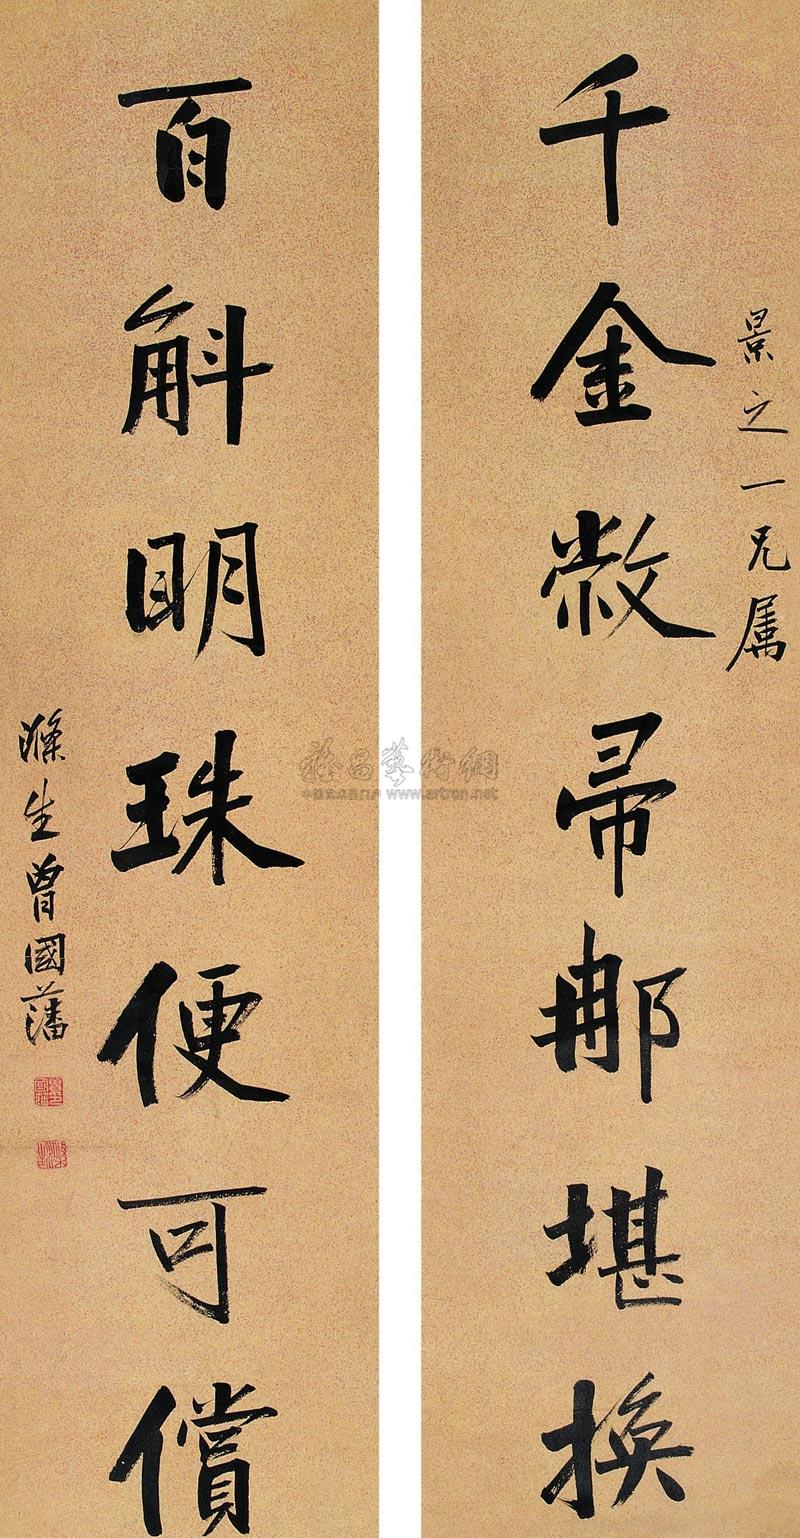 景之一兄属
千金敝帚那堪换
百斛明珠便可償
滌生曾國藩
www.artron.net